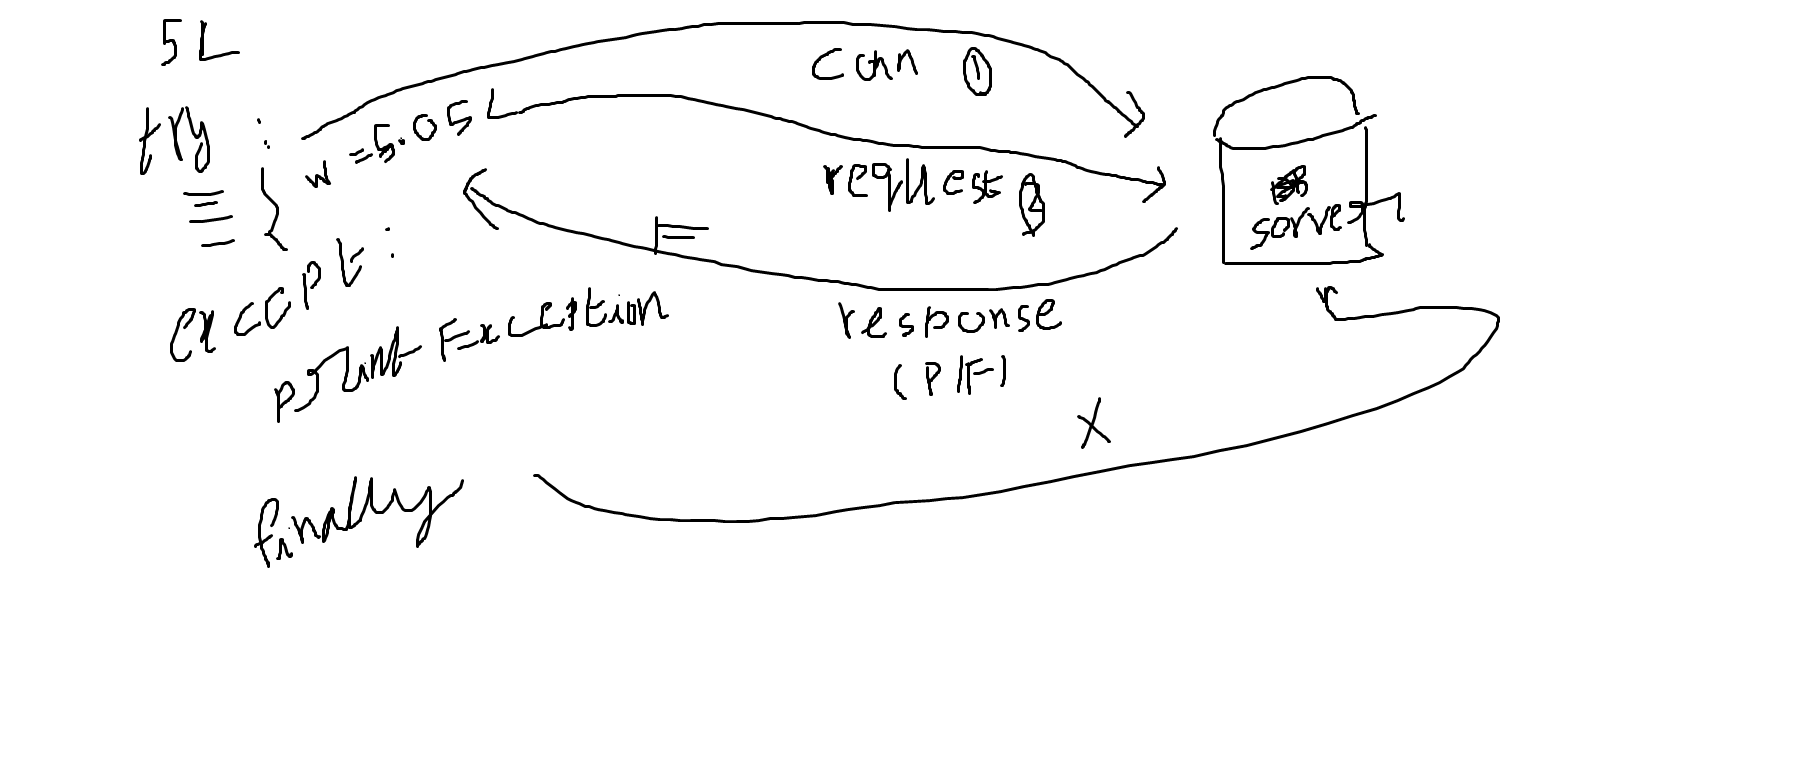 5L
try :
w = 5.05L
except :
print Exception
finally
conn ①
request ②
F
response
(P/F)
X
server